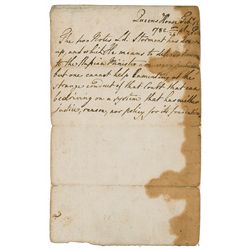 Queens House Feb:
1782
The two Notes Ld. Stormont has drawn
up, and which He means to deliver
to the Russian Minister are very
but one cannot help lamenting at the
strange conduct of that Court that can
be driving on a system, that has neither
justice, reason, nor policy for its foundation